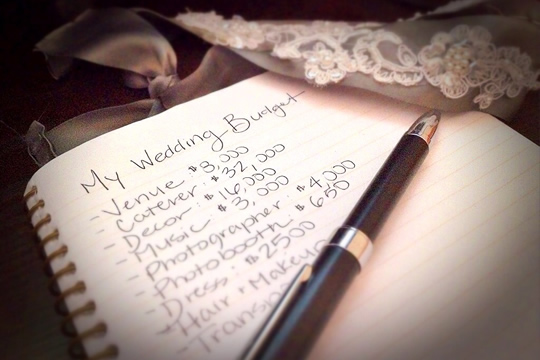 My Wedding Budget
- Venue : $8,000
- Caterer : $32,000
- Decor : $16,000
- Music : $3,000
- Photographer : $4,000
- Photobooth : $650
- Dress : $2500
- Hair + Makeup
- Transp